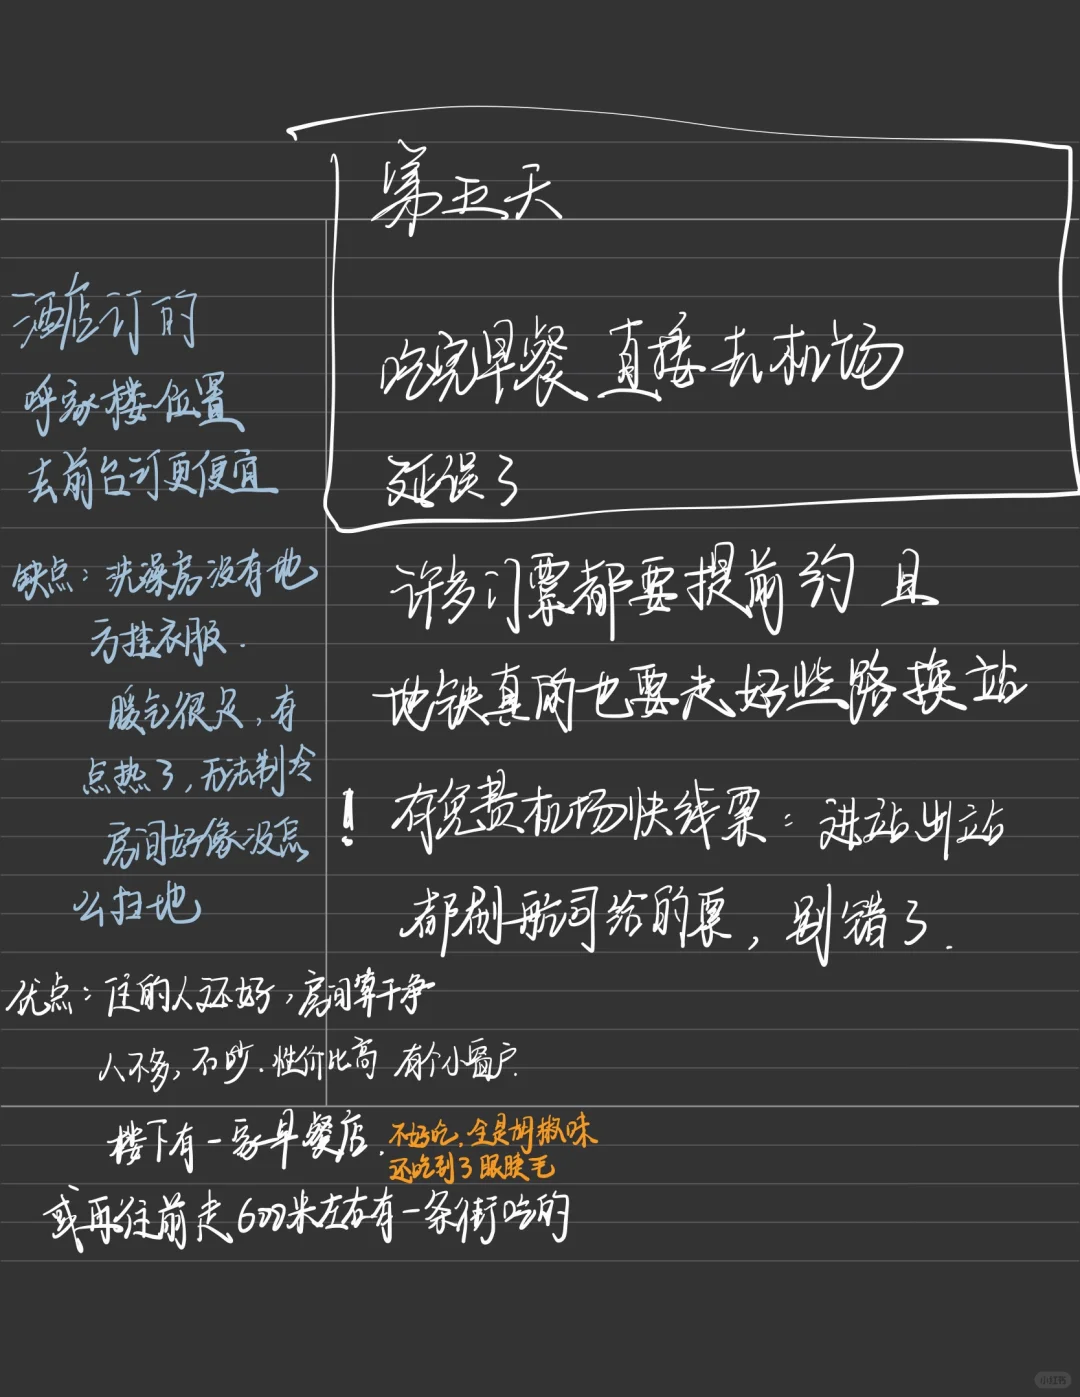 第五天
吃完早餐 直接去机场
延误了
酒店订的
呼家楼位置
去前台订更便宜
缺点：洗澡房没有地
方挂衣服.
暖气很足，有
点热了，无法制冷
房间好像没怎
么扫地
许多门票都要提前约 且
地铁真的也要走好些路换站
！有免费机场快线票：进站出站
都刷航司给的票，别错了.
优点：住的人还好，房间算干净
人不多，不吵.性价比高 有个小窗户.
楼下有一家早餐店.
不好吃.全是胡椒味
还吃到了眼睫毛
或再往前走600米左右有一条街吃的
小红书